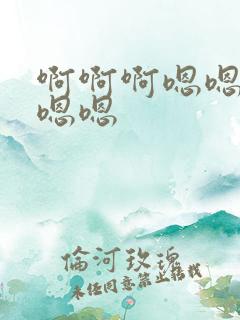 啊啊啊嗯嗯
嗯嗯
倫河玫瑰
未经同意禁止转载